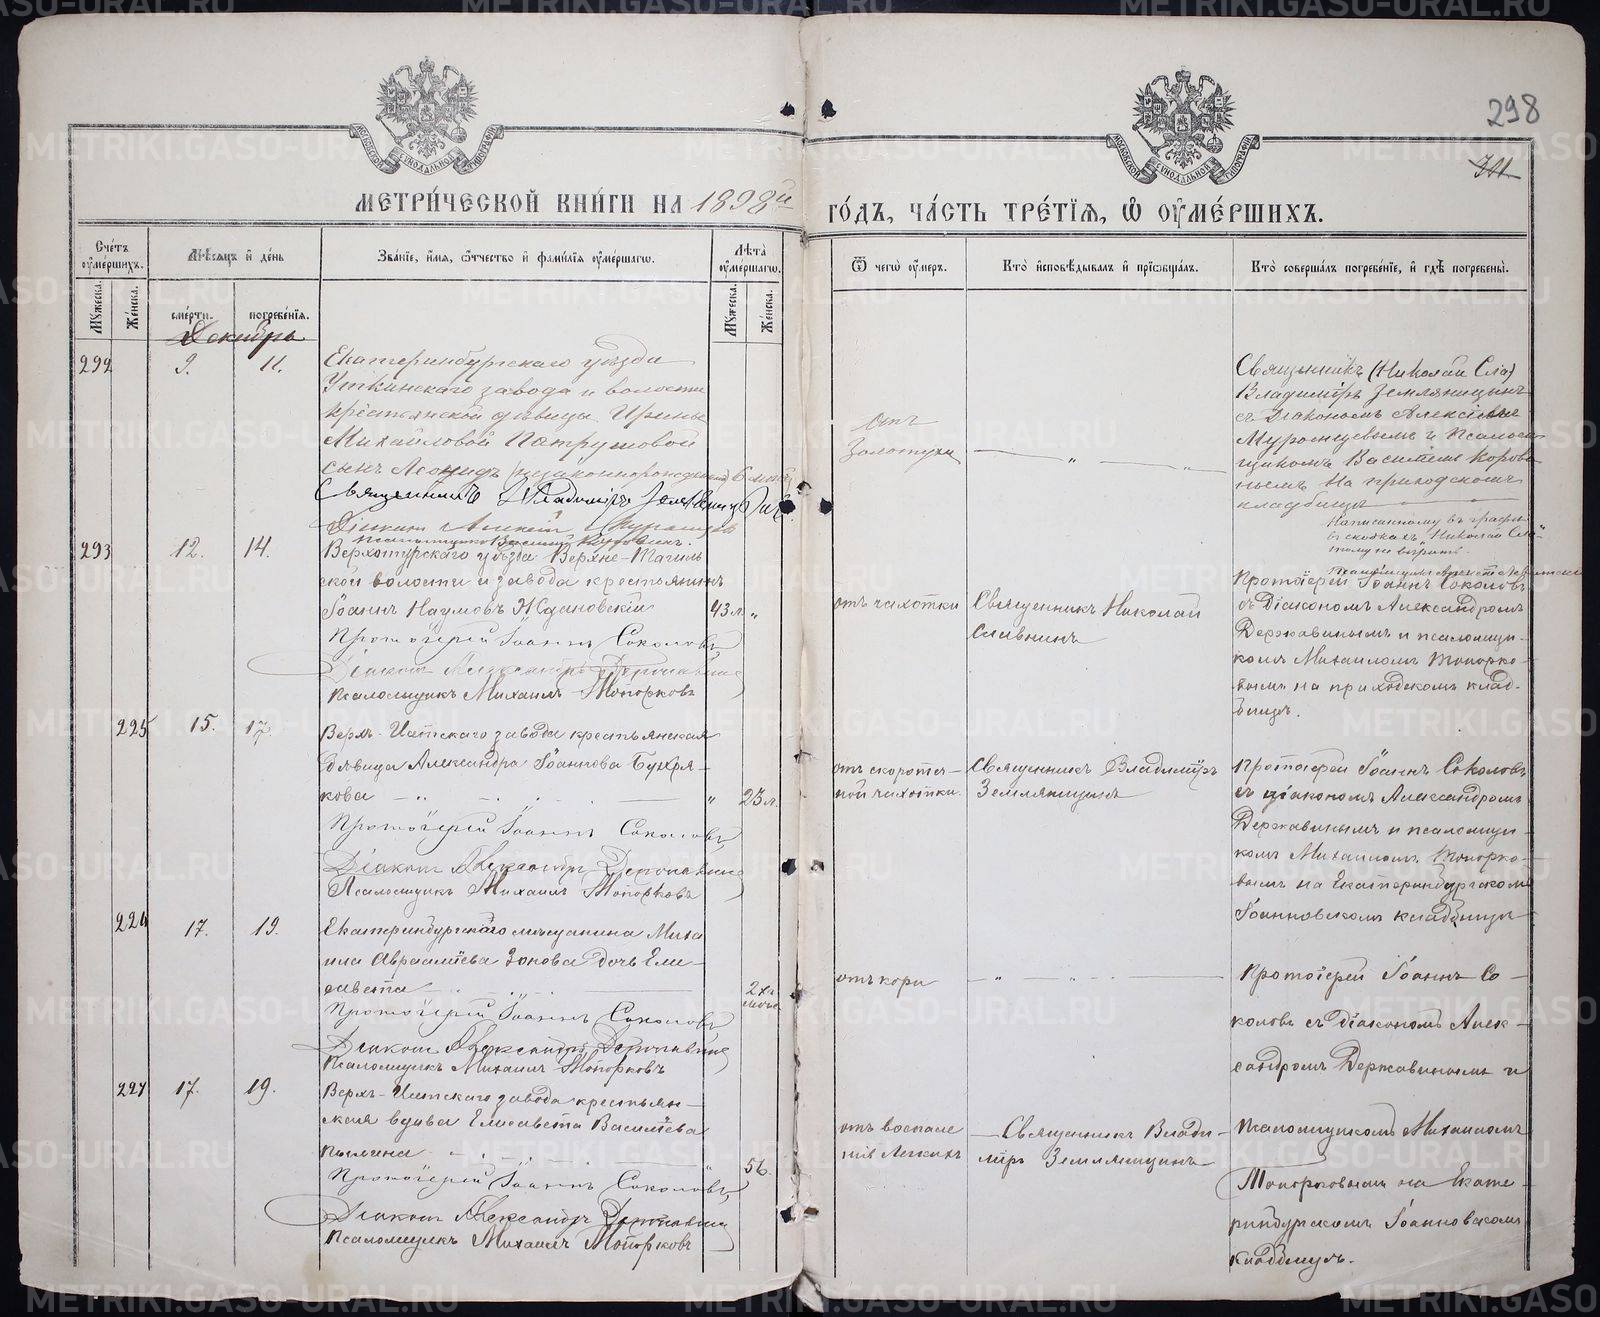 298
МЕТРИ́ЧЕСКОЙ КНИ́ГИ НА 1898й
ГО́ДЪ, ЧА́СТЬ ТРЕ́ТІѦ, Ѡ ОУМЕ́РШИХЪ.
Сче́тъ оуме́ршихъ.
Мѣ́сѧцъ и де́нь
Зва́ніе, и́мѧ, ѻ́тчество и фами́лїѧ оуме́ршагѡ.
Лѣ́та оуме́ршагѡ.
Ѿ чегѡ̀ оу́меръ.
Кто̀ и҆сповѣ́дывалъ и҆ прїѡбща́лъ.
Кто̀ соверша́лъ погребе́нїе, и҆ гдѣ̀ погребены̀.
Му́жеска. Же́нска. сме́рти. погребе́нїѧ. Му́жеска. Же́нска.
Декабрь
292 9. 11. Екатеринбургскаго уѣзда
Уткинскаго завода и волости
крестьянской дѣвицы Ирины
Михайловой Патрушовой
сынъ Леонидъ (незаконнорожденный) 6 мѣс.
Священникъ Владиміръ Земляницынъ
Діаконъ Алексій
Псаломщикъ Василій
отъ
Золотухи
Священникъ (Николай Сла)
Владиміръ Земляницынъ
съ Діакономъ Алексіемъ
и Псаломщикомъ
Василіемъ
на приходскомъ
кладбищѣ
Написанному въ графѣ
въ скобкахъ "Николай Сла"
тому не вѣрить
293 12. 14. Верхотурскаго уѣзда Верхне-Тагиль
ской волости и завода крестьянинъ
Іоаннъ Наумовъ Ждановскій 43 л. "
Протоіерей Іоаннъ Соколовъ
Діаконъ Александръ Державинъ
Псаломщикъ Михаилъ Топорковъ
отъ чахотки
Священникъ Николай
Славнинъ
Протоіерей Іоаннъ Соколовъ
съ Діакономъ Александромъ
Державинымъ и псаломщи-
комъ Михаиломъ Топорко-
вымъ на приходскомъ клад-
бищѣ.
225 15. 17. Верхъ-Исетскаго завода крестьянская
дѣвица Александра Іоаннова Бухря-
кова " 23 л.
Протоіерей Іоаннъ Соколовъ
Діаконъ Александръ Державинъ
Псаломщикъ Михаилъ Топорковъ
отъ скоротеч-
ной чахотки.
Священникъ Владиміръ
Земляницынъ
Протоіерей Іоаннъ Соколовъ
съ діакономъ Александромъ
Державинымъ и псаломщи-
комъ Михаиломъ Топорко-
вымъ на Екатеринбургскомъ
Іоанновскомъ кладбищѣ
226 17. 19. Екатеринбургскаго мѣщанина Миха
ила Авраамьева Зонова дочь Ели-
савета
Протоіерей Іоаннъ Соколовъ
Діаконъ Александръ Державинъ
Псаломщикъ Михаилъ Топорковъ
отъ кори
Протоіерей Іоаннъ Со-
коловъ съ діакономъ Алек-
сандромъ Державинымъ и
227 17. 19. Верхъ-Исетскаго завода крестьян-
ская вдова Елисавета Васильева
56.
Протоіерей Іоаннъ Соколовъ
Діаконъ Александръ Державинъ
Псаломщикъ Михаилъ Топорковъ
отъ воспале
нія легкихъ
Священникъ Влади-
міръ Земляницынъ
Псаломщикомъ Михаиломъ
Топорковымъ на Екате-
ринбургскомъ Іоанновскомъ
кладбищѣ.
METRIKI.GASO-URAL.RU